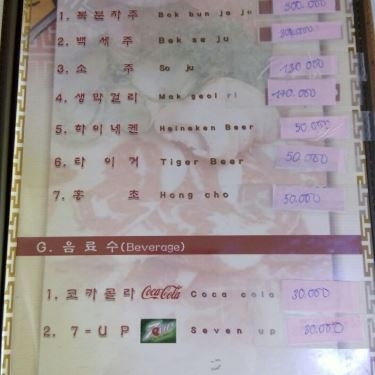 1. 복분자주 Bok bun ja ju 300.000
2. 백세주 Bek se ju 300.000
3. 소주 So ju 130.000
4. 생막걸리 Mak geol ri 140.000
5. 하이네켄 Heineken Beer 50.000
6. 타이거 Tiger Beer 50.000
7. 홍초 Hong cho 50.000
G. 음료수(Beverage)
1. 코카콜라 Coca-Cola Coca cola 30.000
2. 7=UP Seven up 30.000